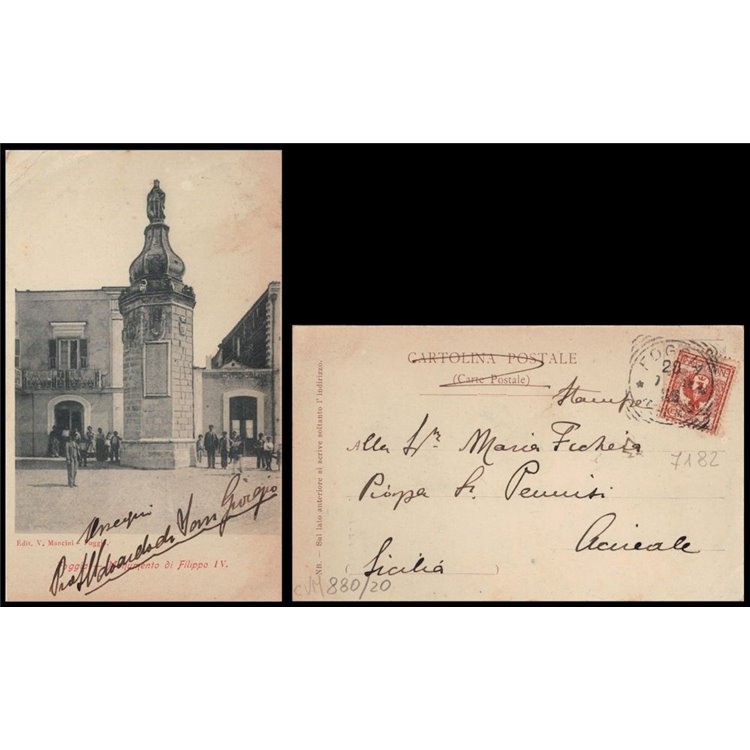 Edit. V. Mancini - Foggia.
Foggia - Monumento di Filippo IV.
Ossequi
Prof. Edoardo di San Giorgio
CARTOLINA POSTALE
(Carte Postale)
Stampe
FOGGIA
20
Alla Sig.ra Maria Fichera
7182
Pennisi
Acireale
Sicilia
NB. - Sul lato anteriore si scrive soltanto l'indirizzo.
CVM 880/20